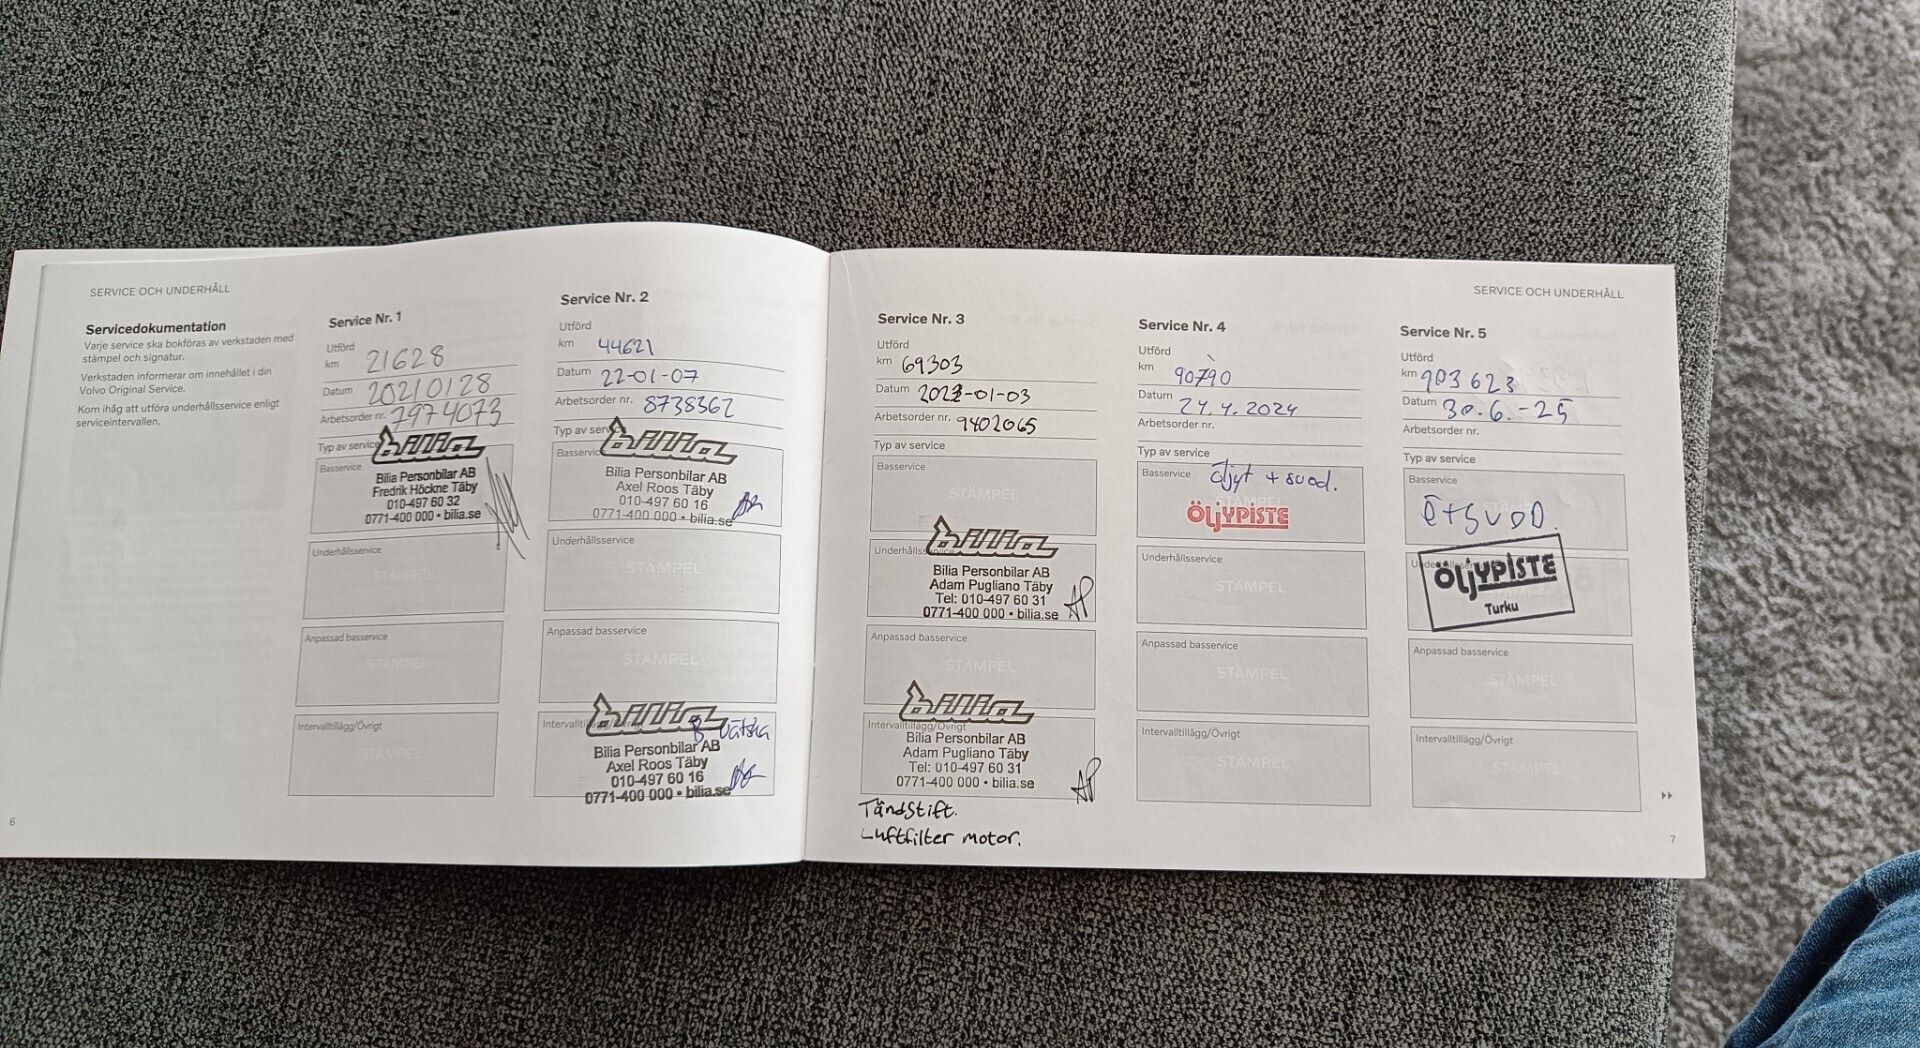 SERVICE OCH UNDERHÅLL
Servicedokumentation
Varje service ska bokföras av verkstaden med
stämpel och signatur.
Verkstaden informerar om innehållet i din
Volvo Original Service.
Kom ihåg att utföra underhållsservice enligt
serviceintervallen.
6
Service Nr. 1
Utförd
km 21628
Datum 20210128
Arbetsorder nr. 7974073
Typ av service
bilia
Basservice
Bilia Personbilar AB
Fredrik Höckne Täby
010-497 60 32
0771-400 000 • bilia.se
Underhållsservice
STÄMPEL
Anpassad basservice
STÄMPEL
Intervalltillägg/Övrigt
STÄMPEL
Service Nr. 2
Utförd
km 44621
Datum 22-01-07
Arbetsorder nr. 8738362
Typ av service
bilia
Basservice
Bilia Personbilar AB
Axel Roos Täby
010-497 60 16
0771-400 000 • bilia.se
Underhållsservice
STÄMPEL
Anpassad basservice
STÄMPEL
bilia
B-vätska
Bilia Personbilar AB
Axel Roos Täby
010-497 60 16
0771-400 000 • bilia.se
Service Nr. 3
Utförd
km 69303
Datum 2023-01-03
Arbetsorder nr. 9402065
Typ av service
Basservice
STÄMPEL
bilia
Bilia Personbilar AB
Adam Pugliano Täby
Tel: 010-497 60 31
0771-400 000 • bilia.se
AP
Anpassad basservice
STÄMPEL
bilia
Intervalltillägg/Övrigt
Bilia Personbilar AB
Adam Pugliano Täby
Tel: 010-497 60 31
0771-400 000 • bilia.se
AP
Tändstift.
Luftfilter motor.
SERVICE OCH UNDERHÅLL
Service Nr. 4
Utförd
km 90790
Datum 24.4.2024
Arbetsorder nr.
Typ av service
Basservice öljyt + suod.
STÄMPEL
ÖLJYPISTE
Underhållsservice
STÄMPEL
Anpassad basservice
STÄMPEL
Intervalltillägg/Övrigt
STÄMPEL
Service Nr. 5
Utförd
km 103 623
Datum 30.6.-25
Arbetsorder nr.
Typ av service
Basservice
Ö+SUOD.
ÖLJYPISTE
Turku
Anpassad basservice
STÄMPEL
Intervalltillägg/Övrigt
STÄMPEL
7